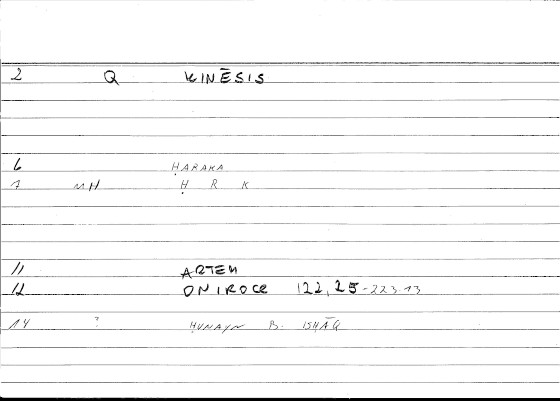 2 Q KINĒSIS
6 ḤARAKA
7 MH Ḥ R K
11 ARTEM
12 ONIROCR 122, 25-223.13
14 ? ḤUNAYN B. ISḤĀQ